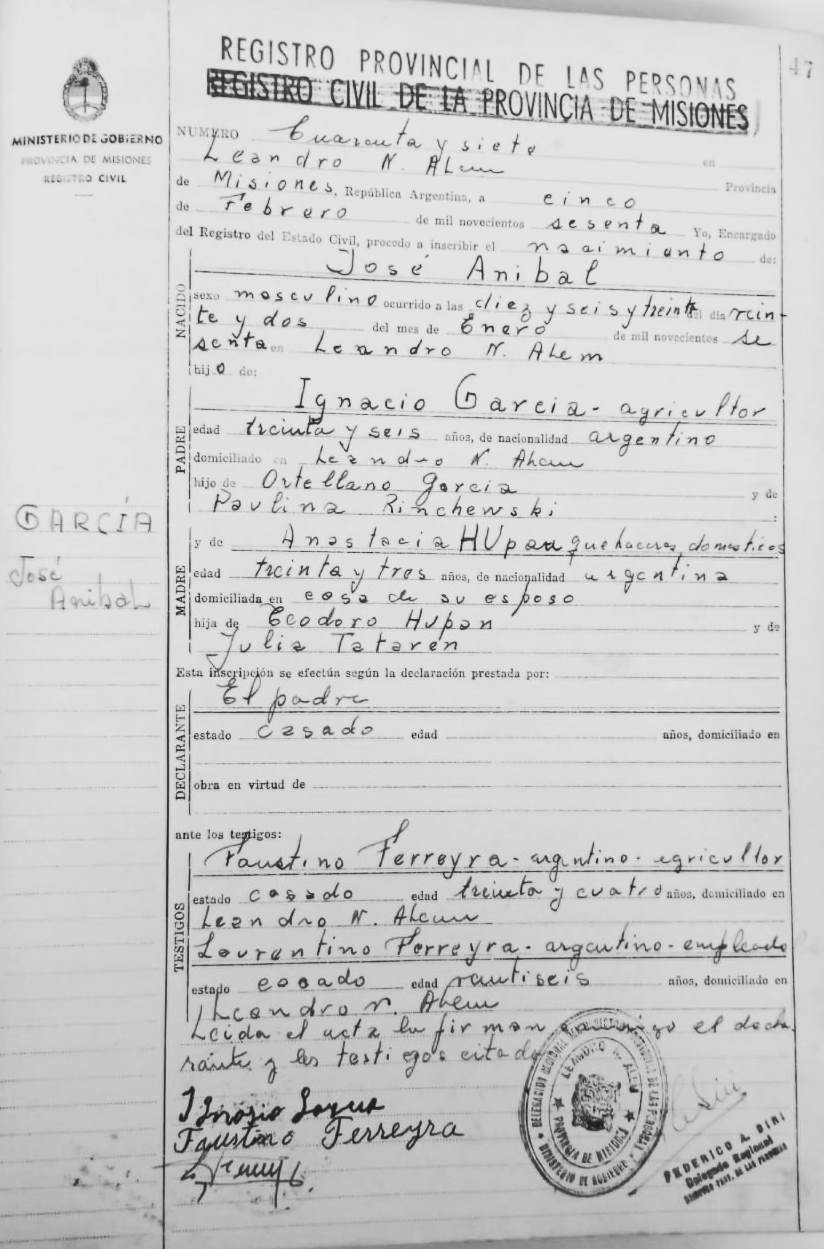 47
REGISTRO PROVINCIAL DE LAS PERSONAS
REGISTRO CIVIL DE LA PROVINCIA DE MISIONES
MINISTERIO DE GOBIERNO
PROVINCIA DE MISIONES
REGISTRO CIVIL
NUMERO Cuarenta y siete
Leandro N. Alem en
de Misiones, República Argentina, a cinco Provincia
de Febrero de mil novecientos sesenta Yo, Encargado
del Registro del Estado Civil, procedo a inscribir el nacimiento de:
NACIDO
José Anibal
sexo masculino ocurrido a las diez y seis y treinta del día vein-
te y dos del mes de Enero de mil novecientos se
senta en Leandro N. Alem
hijo de:
PADRE
Ignacio Garcia - agricultor
edad treinta y seis años, de nacionalidad argentino
domiciliado en Leandro N. Alem
hijo de Ortellano Garcia y de
Paulina Rinchewski :
GARCÍA
José
Anibal
MADRE
y de Anastacia HUpan quehaceres domesticos
edad treinta y tres años, de nacionalidad argentina
domiciliada en casa de su esposo
hija de Teodoro Hupan y de
Julia Tataren
Esta inscripción se efectúa según la declaración prestada por:
DECLARANTE
El padre
estado casado edad años, domiciliado en
obra en virtud de
ante los testigos:
TESTIGOS
Faustino Ferreyra - argentino - agricultor
estado casado edad treinta y cuatro años, domiciliado en
Leandro N. Alem
Laurentino Ferreyra - argentino - empleado
estado casado edad años, domiciliado en
Leandro N. Alem
Leida el acta la firman conmigo el decla
rante y los testigos citados
Faustino Ferreyra
LEANDRO N. ALEM
PROVINCIA DE MISIONES
MINISTERIO DE GOBIERNO
FEDERICO A. DIRI
Delegado Regional
REGISTRO PROV. DE LAS PERSONAS